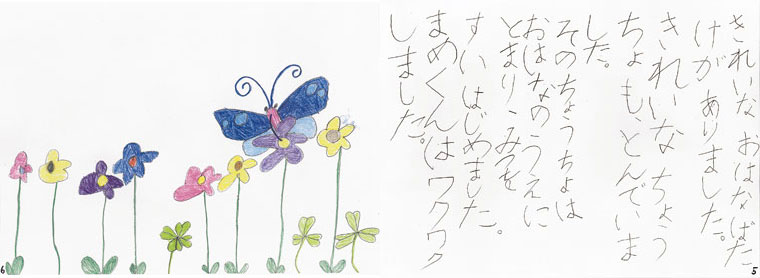 きれいな おはなばた
けが ありました。
きれいな ちょう
ちょも、とんでいま
した。
そのちょうちょは
おはなのうえに
とまり、みつを
すいはじめました。
まめくんはワクワク
しました。
5
6